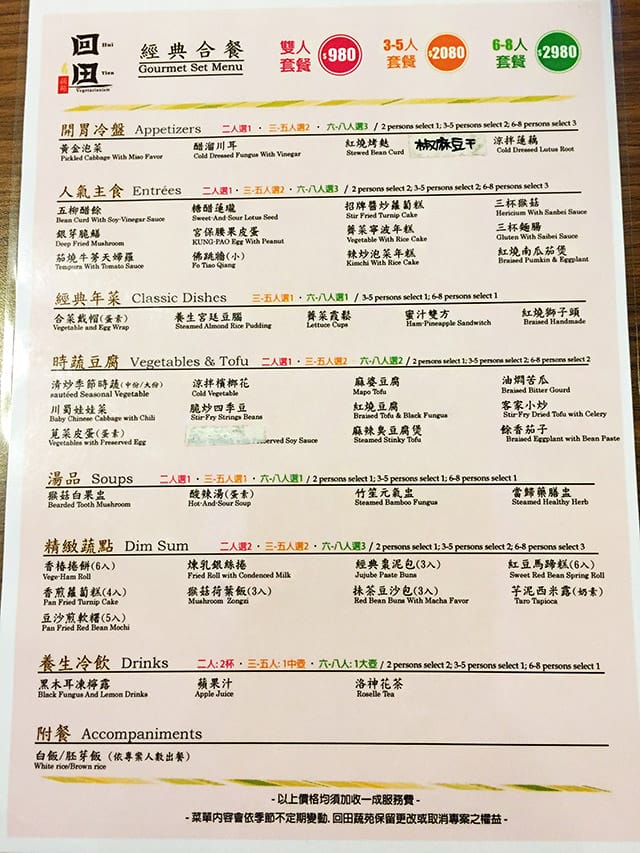 回田
Hui
Tien
蔬苑
Vegetarianism
經典合餐
Gourmet Set Menu
雙人套餐 $980
3-5人套餐 $2080
6-8人套餐 $2980
開胃冷盤 Appetizers 二人選1・三-五人選2・六-八人選3 / 2 persons select 1; 3-5 persons select 2; 6-8 persons select 3
黃金泡菜 醋溜川耳 紅燒烤麩 椒麻豆干 涼拌蓮藕
Pickled Cabbage With Miso Favor Cold Dressed Fungus With Vinegar Stewed Bean Curd Cold Dressed Lutus Root
人氣主食 Entrées 二人選2・三-五人選2・六-八人選3 / 2 persons select 2; 3-5 persons select 2; 6-8 persons select 3
五柳醋餘 糖醋蓮瓏 招牌醬炒蘿蔔糕 三杯猴菇
Bean Curd With Soy-Vinegar Sauce Sweet-And-Sour Lotus Seed Stir Fried Turnip Cake Hericium With Sanbei Sauce
銀芽脆鱔 宮保腰果皮蛋 薺菜寧波年糕 三杯麵腸
Deep Fried Mushroom KUNG-PAO Egg With Peanut Vegetable With Rice Cake Gluten With Saibei Sauce
茄燒牛蒡天婦羅 佛跳牆(小) 辣炒泡菜年糕 紅燒南瓜茄煲
Tempura With Tomato Sauce Fo Tiao Qiang Kimchi With Rice Cake Braised Pumkin & Eggplant
經典年菜 Classic Dishes 三-五人選1・六-八人選1 / 3-5 persons select 1; 6-8 persons select 1
合菜戴帽(蛋素) 養生宮廷豆腦 薺菜霞鬆 蜜汁雙方 紅燒獅子頭
Vegetable and Egg Wrap Steamed Almond Rice Pudding Lettuce Cups Ham-Pineapple Sandwitch Braised Handmade
時蔬豆腐 Vegetables & Tofu 二人選1・三-五人選2 六-八人選2 / 2 persons select 1; 3-5 persons select 2; 6-8 persons select 2
清炒季節時蔬(中份/大份) 涼拌檳榔花 麻婆豆腐 油燜苦瓜
sautéed Seasonal Vegetable Cold Vegetable Mapo Tofu Braised Bitter Gourd
川蜀娃娃菜 脆炒四季豆 紅燒豆腐 客家小炒
Baby Chinese Cabbage with Chili Stir-Fry Strings Beans Braised Tofu & Black Fungus Stir-Fry Dried Tofu with Celery
莧菜皮蛋(蛋素) 麻辣臭豆腐煲 餘香茄子
Vegetables with Preserved Egg Preserved Soy Sauce Steamed Stinky Tofu Braised Eggplant with Bean Paste
湯品 Soups 二人選1・三-五人選1・六-八人選1 / 2 persons select 1; 3-5 persons select 1; 6-8 persons select 1
猴菇白果盅 酸辣湯(蛋素) 竹笙元氣盅 當歸藥膳盅
Bearded Tooth Mushroom Hot-And-Sour Soup Steamed Bamboo Fungus Steamed Healthy Herb
精緻蔬點 Dim Sum 二人選2・三-五人選2・六-八人選3 / 2 persons select 1; 3-5 persons select 2; 6-8 persons select 3
香椿捲餅(6入) 煉乳銀絲捲 經典棗泥包(3入) 紅豆馬蹄糕(6入)
Vege-Ham Roll Fried Roll with Condenced Milk Jujube Paste Buns Sweet Red Bean Spring Roll
香煎蘿蔔糕(4入) 猴菇荷葉飯(3入) 抹茶豆沙包(3入) 芋泥西米露(奶素)
Pan Fried Turnip Cake Mushroom Zongzi Red Bean Buns With Macha Favor Taro Tapioca
豆沙煎軟糬(5入)
Pan Fried Red Bean Mochi
養生冷飲 Drinks 二人: 2杯・三-五人: 1中壺・六-八人: 1大壺 / 2 persons select 2; 3-5 persons select 1; 6-8 persons select 1
黑木耳凍檸露 蘋果汁 洛神花茶
Black Fungus And Lemon Drinks Apple Juice Roselle Tea
附餐 Accompaniments
白飯/胚芽飯 (依專案人數出餐)
White rice/Brown rice
- 以上價格均須加收一成服務費 -
- 菜單內容會依季節不定期變動, 回田蔬苑保留更改或取消專案之權益 -